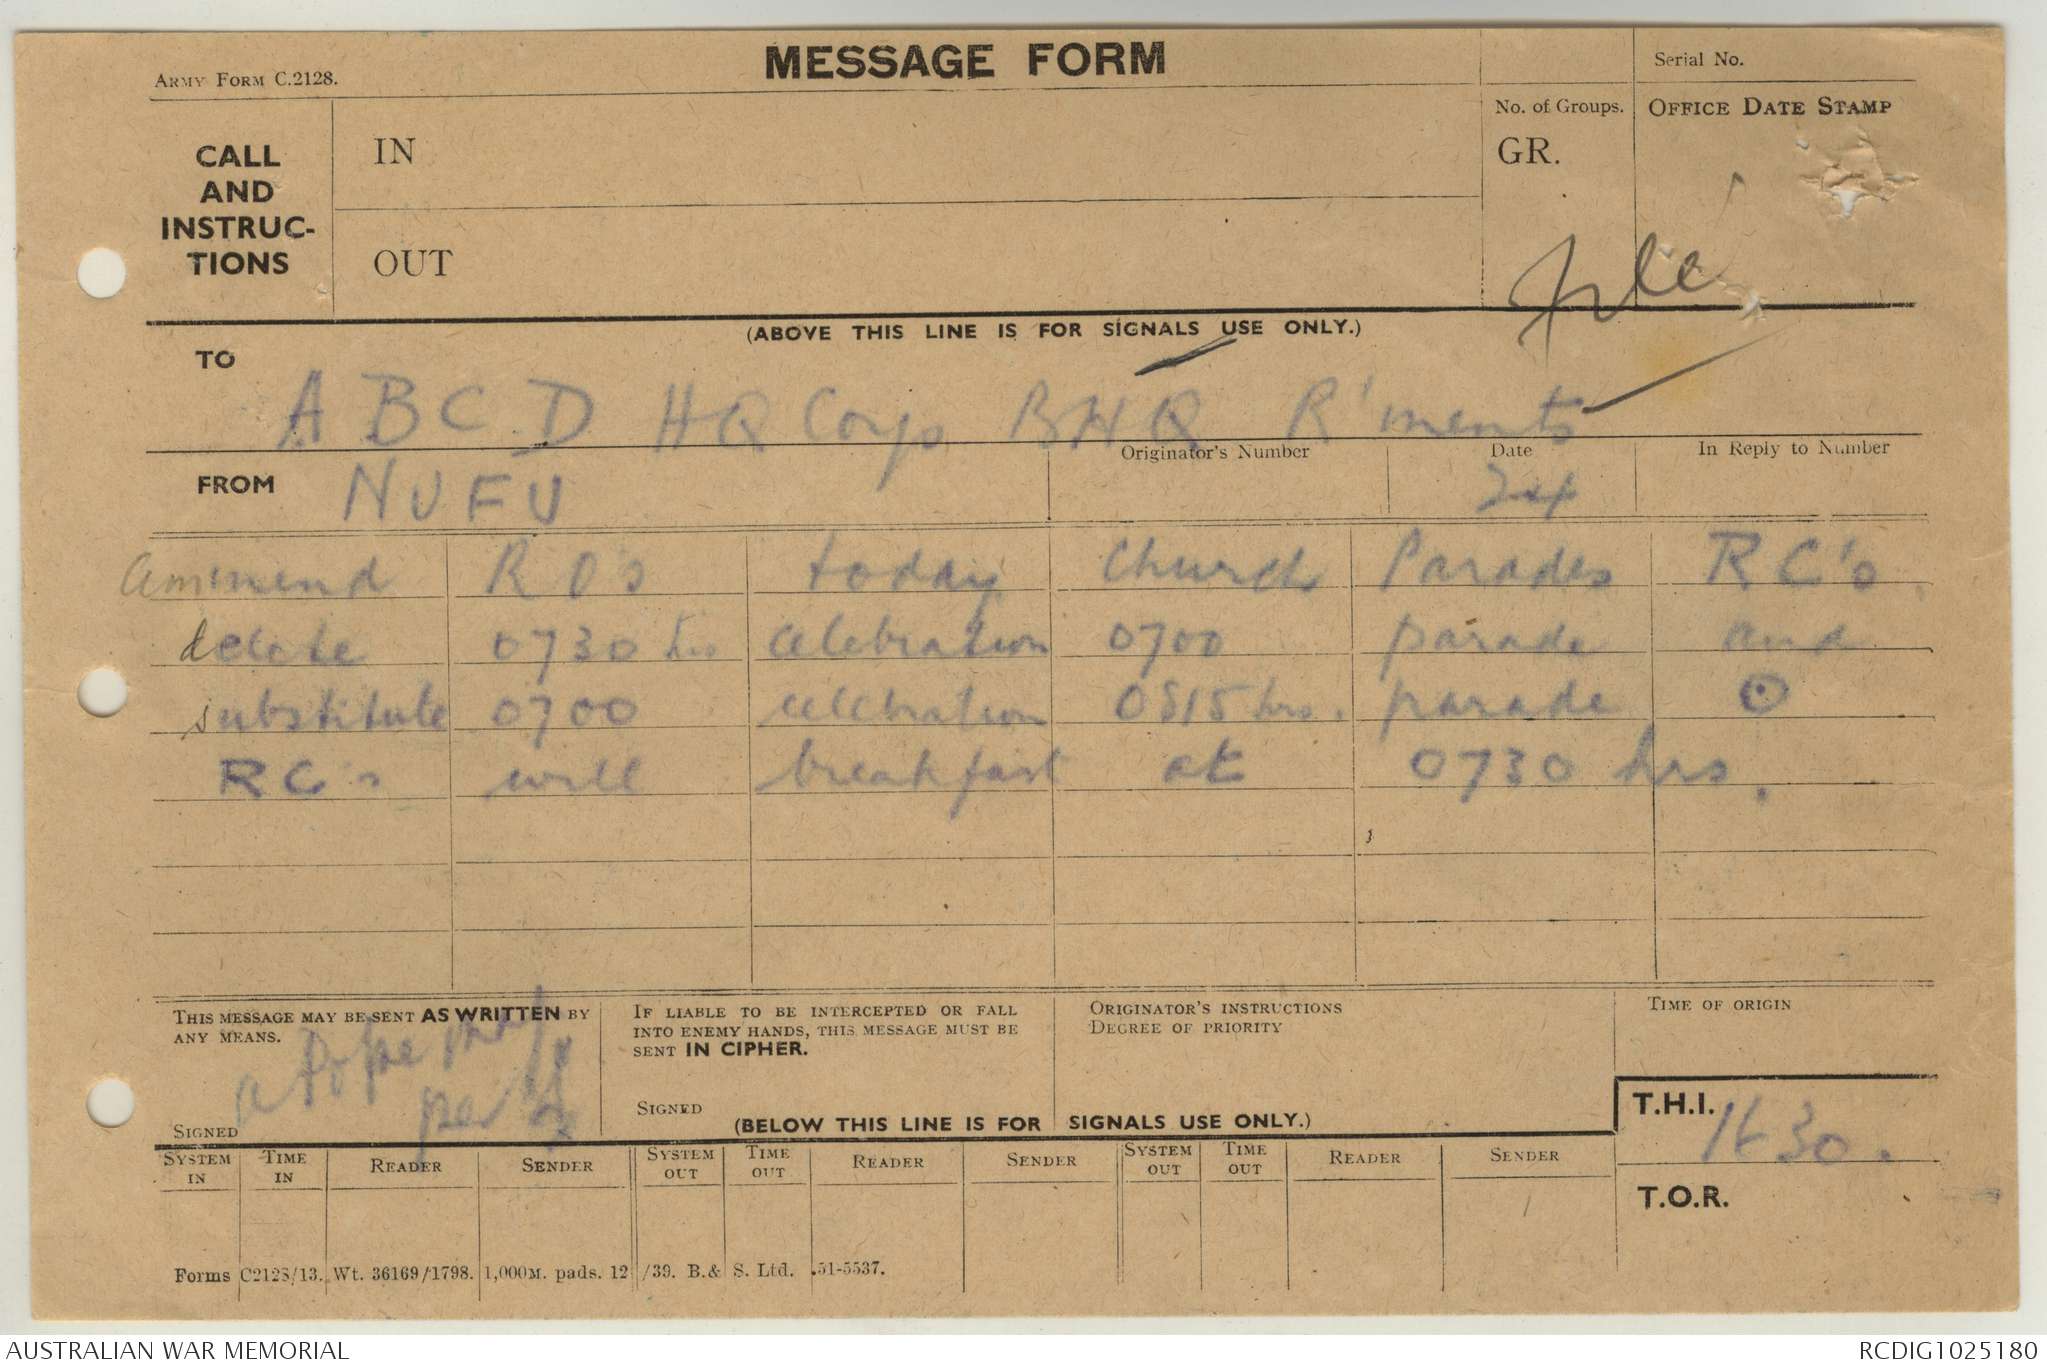 ARMY FORM C.2128.
MESSAGE FORM
Serial No.
CALL AND INSTRUC-TIONS
IN
OUT
No. of Groups.
GR.
OFFICE DATE STAMP
File
(ABOVE THIS LINE IS FOR SIGNALS USE ONLY.)
TO
A B C D HQ Coys BHQ R'ments
FROM NUFU
Originator's Number
Date
24
In Reply to Number
ammend RO's today Church Parades RC's
delete 0730 hrs celebration 0700 parade and
substitute 0700 celebration 0815 hrs. parade ⊙
RC's will breakfast at 0730 hrs.
THIS MESSAGE MAY BE SENT AS WRITTEN BY ANY MEANS.
SIGNED
IF LIABLE TO BE INTERCEPTED OR FALL INTO ENEMY HANDS, THIS MESSAGE MUST BE SENT IN CIPHER.
SIGNED
ORIGINATOR'S INSTRUCTIONS
DEGREE OF PRIORITY
TIME OF ORIGIN
T.H.I. 1630.
(BELOW THIS LINE IS FOR SIGNALS USE ONLY.)
SYSTEM IN TIME IN READER SENDER SYSTEM OUT TIME OUT READER SENDER SYSTEM OUT TIME OUT READER SENDER
T.O.R.
Forms C2128/13. Wt. 36169/1798. 1,000M. pads. 12/39. B.& S. Ltd. .51-5537.
AUSTRALIAN WAR MEMORIAL
RCDIG1025180